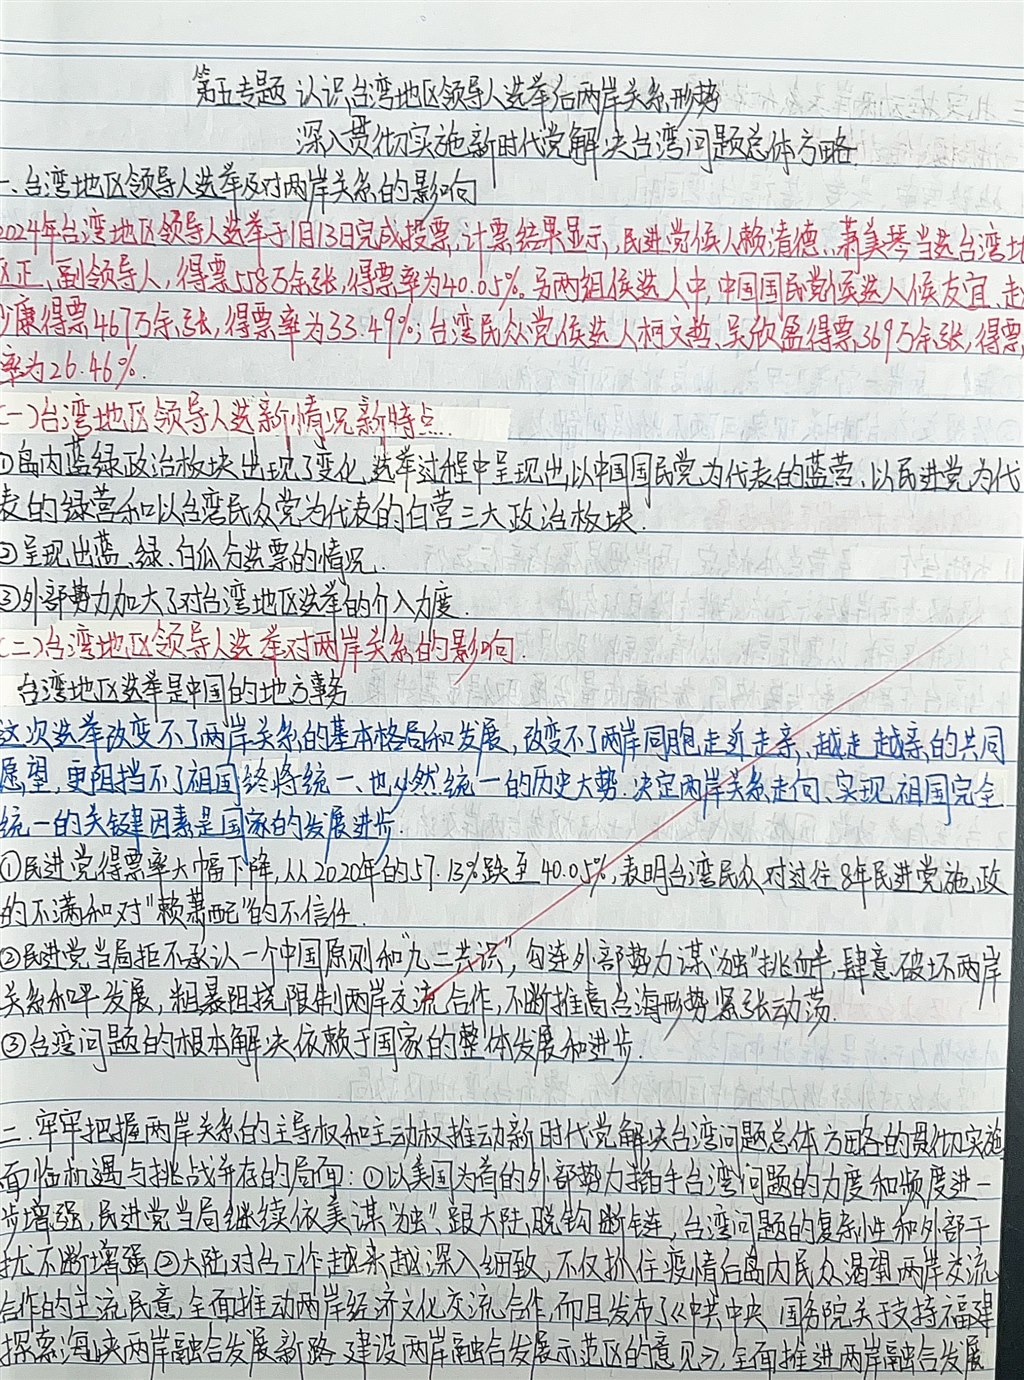 第五专题 认识台湾地区领导人选举后两岸关系形势
深入贯彻实施新时代党解决台湾问题总体方略
一、台湾地区领导人选举及对两岸关系的影响
2024年台湾地区领导人选举于1月13日完成投票,计票结果显示,民进党候人赖清德、萧美琴当选台湾地
区正、副领导人,得票558万余张,得票率为40.05%。另两组候选人中,中国国民党候选人侯友宜、赵
少康得票467万余张,得票率为33.49%;台湾民众党候选人柯文哲、吴欣盈得票369万余张,得票
率为26.46%.
(一)台湾地区领导人选新情况新特点.
①岛内蓝绿政治板块出现了变化,选举过程中呈现出以中国国民党为代表的蓝营、以民进党为代
表的绿营和以台湾民众党为代表的白营三大政治板块.
②呈现出蓝、绿、白瓜分选票的情况.
③外部势力加大了对台湾地区选举的介入力度.
(二)台湾地区领导人选举对两岸关系的影响.
台湾地区选举是中国的地方事务.
这次选举改变不了两岸关系的基本格局和发展,改变不了两岸同胞走近走亲、越走越亲的共同
愿望,更阻挡不了祖国终将统一、也必然统一的历史大势.决定两岸关系走向、实现祖国完全
统一的关键因素是国家的发展进步.
①民进党得票率大幅下降,从2020年的57.13%跌至40.05%,表明台湾民众对过往8年民进党施政
的不满和对“赖萧配”的不信任.
②民进党当局拒不承认一个中国原则和“九二共识”,勾连外部势力谋“独”挑衅,肆意破坏两岸
关系和平发展,粗暴阻挠限制两岸交流合作,不断推高台海形势紧张动荡.
③台湾问题的根本解决依赖于国家的整体发展和进步.
二.牢牢把握两岸关系的主导权和主动权推动新时代党解决台湾问题总体方略的贯彻实施
面临机遇与挑战并存的局面:①以美国为首的外部势力插手台湾问题的力度和频度进一
步增强,民进党当局继续依美谋“独”、跟大陆“脱钩断链,台湾问题的复杂性和外部干
扰不断增强②大陆对台工作越来越深入细致,不仅抓住疫情后岛内民众渴望两岸交流
合作的主流民意,全面推动两岸经济文化交流合作,而且发布了《中共中央 国务院关于支持福建
探索海峡两岸融合发展新路 建设两岸融合发展示范区的意见》,全面推进两岸融合发展